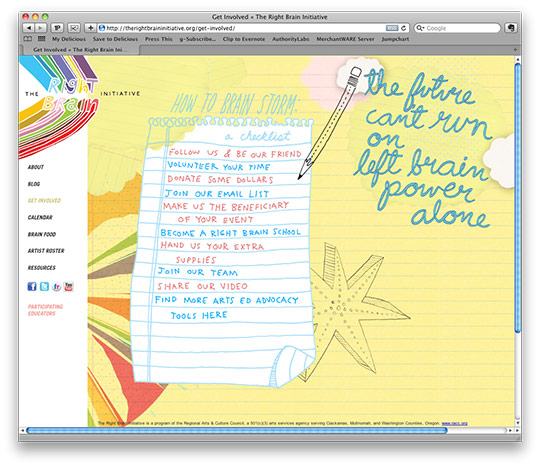 Get Involved « The Right Brain Initiative
http://therightbraininitiative.org/get-involved/
Google
My Delicious
Save to Delicious
Press This
g-Subscribe...
Clip to Evernote
AuthorityLabs
MerchantWARE Server
Jumpchart
Get Involved « The Right Brain Ini...
THE Right Brain INITIATIVE
ABOUT
BLOG
GET INVOLVED
CALENDAR
BRAIN FOOD
ARTIST ROSTER
RESOURCES
PARTICIPATING
EDUCATORS
HOW TO BRAIN STORM:
a checklist
FOLLOW US & BE OUR FRIEND
VOLUNTEER YOUR TIME
DONATE SOME DOLLARS
JOIN OUR EMAIL LIST
MAKE US THE BENEFICIARY
OF YOUR EVENT
BECOME A RIGHT BRAIN SCHOOL
HAND US YOUR EXTRA
SUPPLIES
JOIN OUR TEAM
SHARE OUR VIDEO
FIND MORE ARTS ED ADVOCACY
TOOLS HERE
the future
can't run
on
left brain
power
alone
The Right Brain Initiative is a program of the Regional Arts & Culture Council, a 501(c)(3) arts services agency serving Clackamas, Multnomah, and Washington Counties, Oregon. www.racc.org